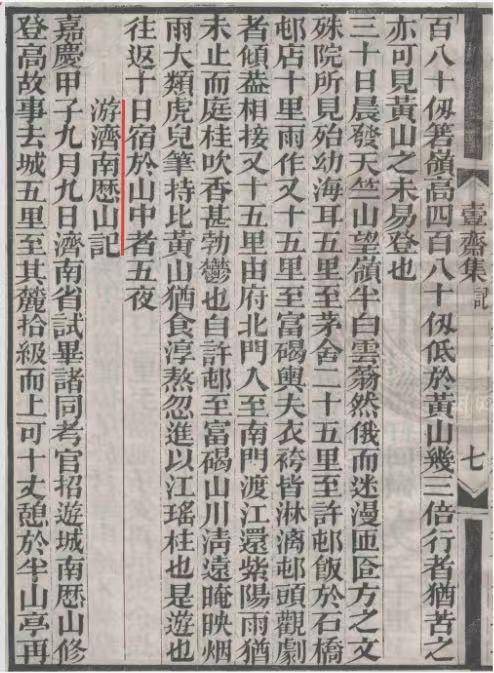 壹齋集 記
七
百八十仭箬嶺高四百八十仭低於黃山幾三倍行者猶苦之
亦可見黃山之未易登也
三十日晨發天竺山望嶺半白雲蓊然俄而迷漫匝匼方之文
殊院所見殆幼海耳五里至茅舍二十五里至許邨飯於石橋
邨店十里雨作又十五里至富碣輿夫衣袴皆淋漓邨頭觀劇
者傾葢相接又十五里由府北門入至南門渡江還紫陽雨猶
未止而庭桂吹香甚勃鬱也自許邨至富碣山川淸遠晻映烟
雨大類虎兒筆持比黃山猶食淳熬忽進以江瑤柱也是遊也
往返十日宿於山中者五夜
游濟南歷山記
嘉慶甲子九月九日濟南省試畢諸同考官招遊城南歷山修
登高故事去城五里至其麓拾級而上可十丈憩於半山亭再